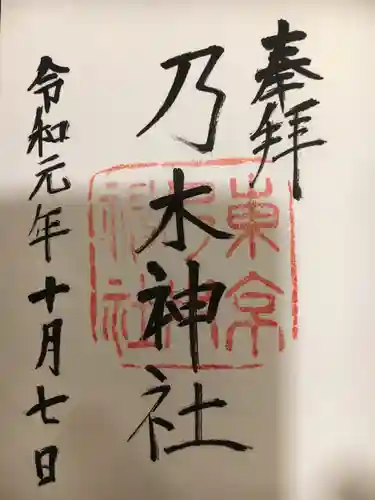 奉拝
乃木神社
令和元年十月七日
東京
乃木
神社